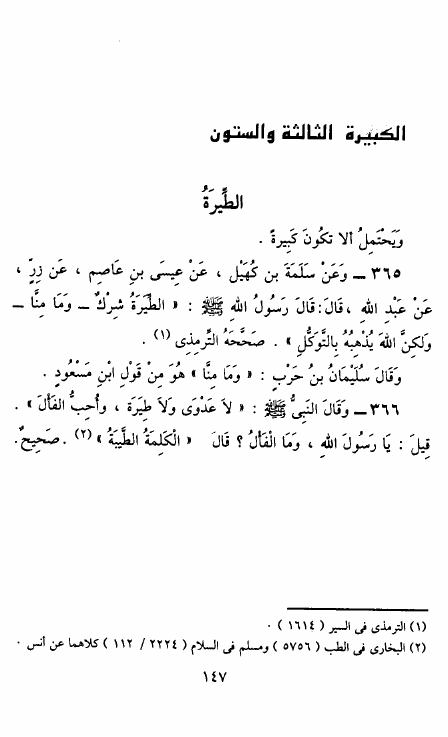 الكبيرة الثالثة والستون
الطِّيَرَةُ
وَيَحْتَمِلُ ألا تكُونَ كَبِيرةً .
٣٦٥ ــ وَعَنْ سَلَمَةَ بن كُهَيْل ، عَنْ عِيسَى بنِ عَاصِم ، عَن زِرٍّ ،
عَنْ عَبْدِ اللهِ ، قَالَ : قَالَ رَسُولُ اللهِ ﷺ : « الطِّيَرَةُ شِرْكٌ ــ وَمَا مِنَّا ــ
وَلكِنَّ اللهَ يُذْهِبُهُ بِالتَّوَكُّلِ » . صَحَّحَهُ التِّرمِذِى (١) .
وَقَالَ سُلَيْمَانُ بنُ حَرْبٍ : « وَمَا مِنَّا » هُوَ مِنْ قَوْلِ ابْنِ مَسْعُودٍ .
٣٦٦ ــ وَقَالَ النَّبِىُّ ﷺ : « لاَ عَدْوَى وَلاَ طِيَرَة ، وَأُحِبُّ الفَألَ » .
قِيلَ : يَا رَسُولَ اللهِ ، وَمَا الْفَألُ ؟ قَالَ « الْكَلِمَةُ الطَّيِّبَةُ » (٢) . صَحِيحٌ .
(١) الترمذى فى السير ( ١٦١٤ ) .
(٢) البخارى فى الطب ( ٥٧٥٦ ) ومسلم فى السلام ( ٢٢٢٤ / ١١٢ ) كلاهما عن أنس .
١٤٧